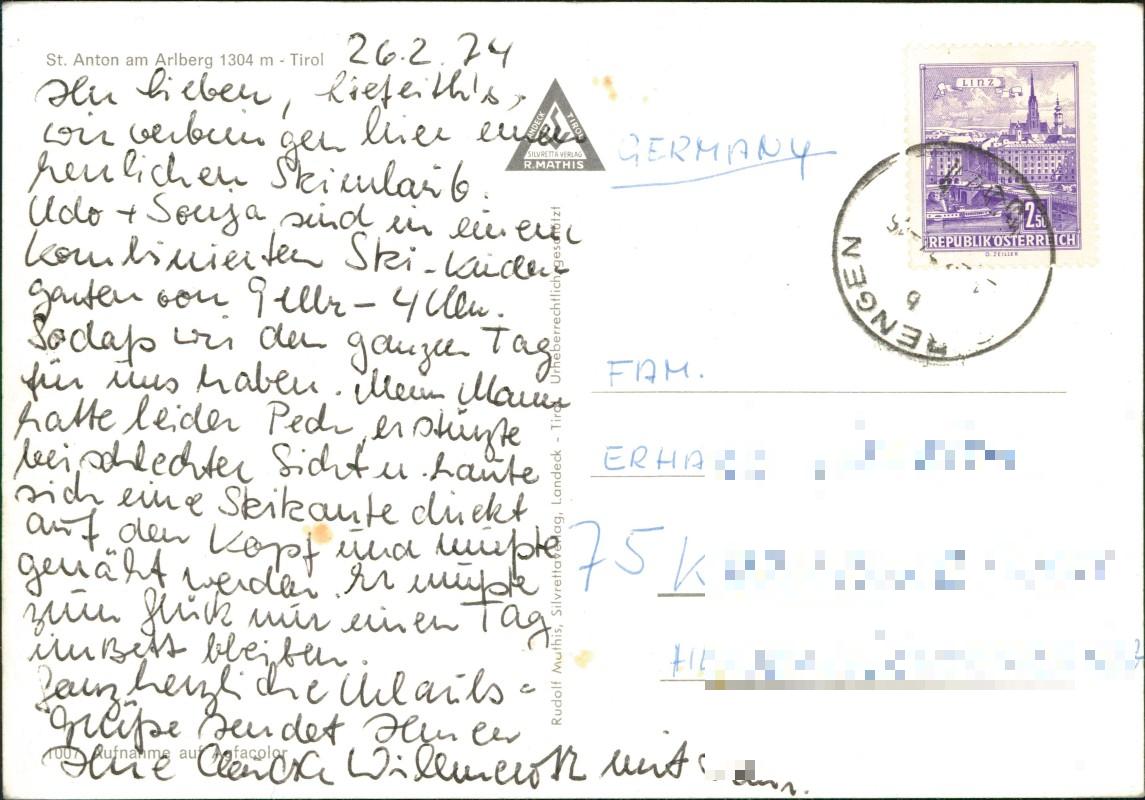 St. Anton am Arlberg 1304 m - Tirol
26.2.74
Ihr lieben,
wir verbringen hier einen
herrlichen Skiurlaub.
Udo + Sonja sind in einem
kombinierten Ski-Kinder-
garten von 9 Uhr - 4 Uhr.
Sodaß wir den ganzen Tag
für uns haben. Mein Mann
hatte leider Pech, er stürzte
bei schlechter Sicht u. haute
sich eine Skikante direkt
auf den Kopf und mußte
genäht werden. Er mußte
zum Glück nur einen Tag
im Bett bleiben.
Ganz herzliche Urlaubs=
grüße sendet Ihnen
Ihre mit
1007 Aufnahme auf Agfacolor
LANDECK TIROL
SILVRETTA VERLAG
R. MATHIS
Rudolf Mathis, Silvrettaverlag, Landeck - Tirol Urheberrechtlich geschützt
LINZ
2.50
REPUBLIK ÖSTERREICH
O. ZEILLER
RENGEN
6
GERMANY
FAM.
ERHA
75 K